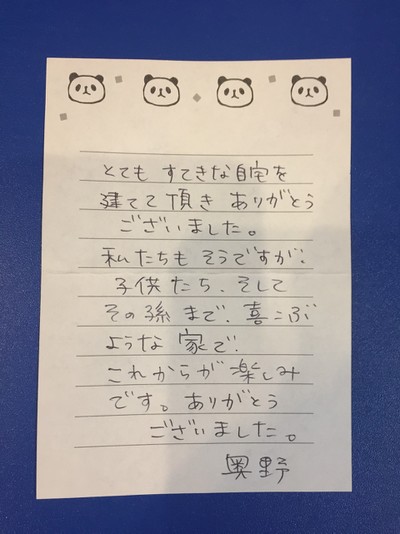 とても すてきな自宅を
建てて頂き ありがとう
ございました。
私たちも そうですが、
子供たち、そして
その孫まで、喜こぶ
ような 家で、
これからが楽しみ
です。ありがとう
ございました。
奥野